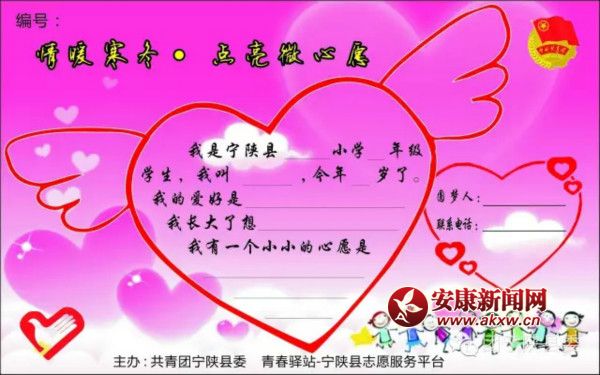 编号：
情暖寒冬•点亮微心愿
我是宁陕县____小学__年级
学生，我叫____，今年__岁了。
我的爱好是
我长大了想
我有一个小小的心愿是
圆梦人：
联系电话：
安康新闻网
www.akxw.cn
主办：共青团宁陕县委 青春驿站-宁陕县志愿服务平台